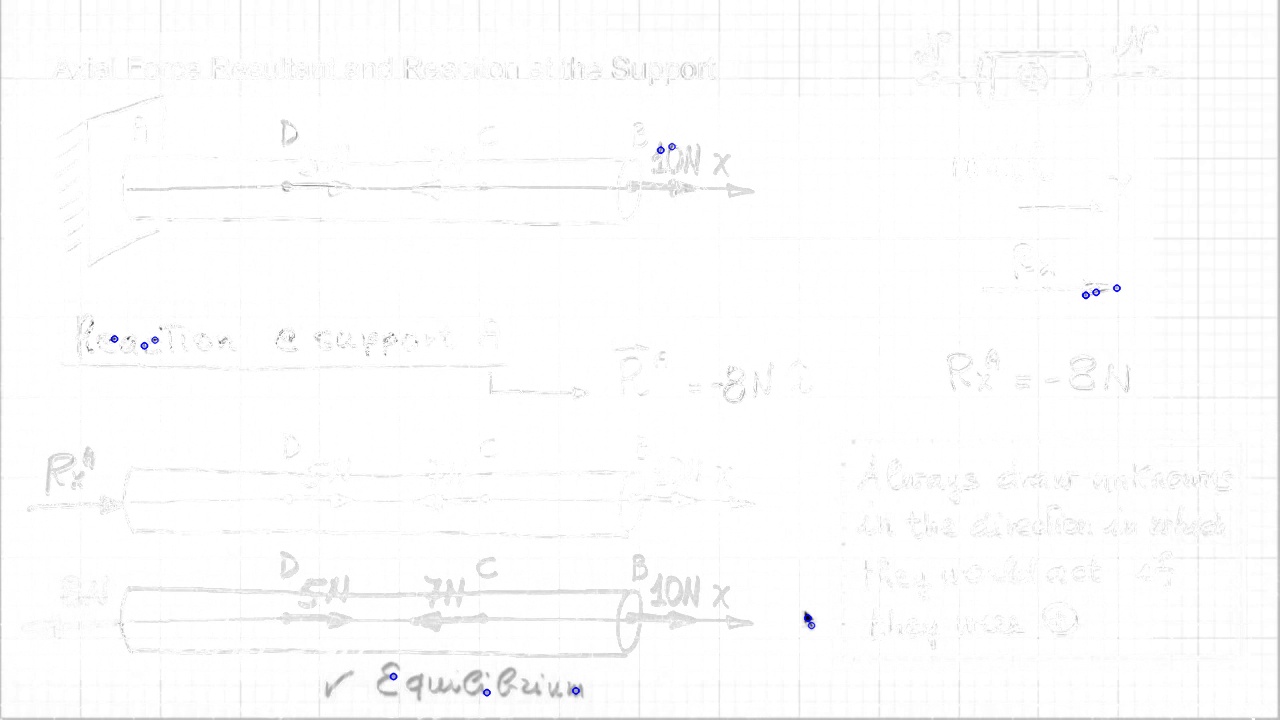 Axial Force Resultant and Reaction at the Support
N N
A D C B
5N 7N 10N x
Rx
Reaction @ support A
R = -8N
RxA = -8N
D C B
RxA 5N 7N 10N x
Always draw unknowns
in the direction in which
they would act if
they were +
D C B
8N 5N 7N 10N x
✓ Equilibrium